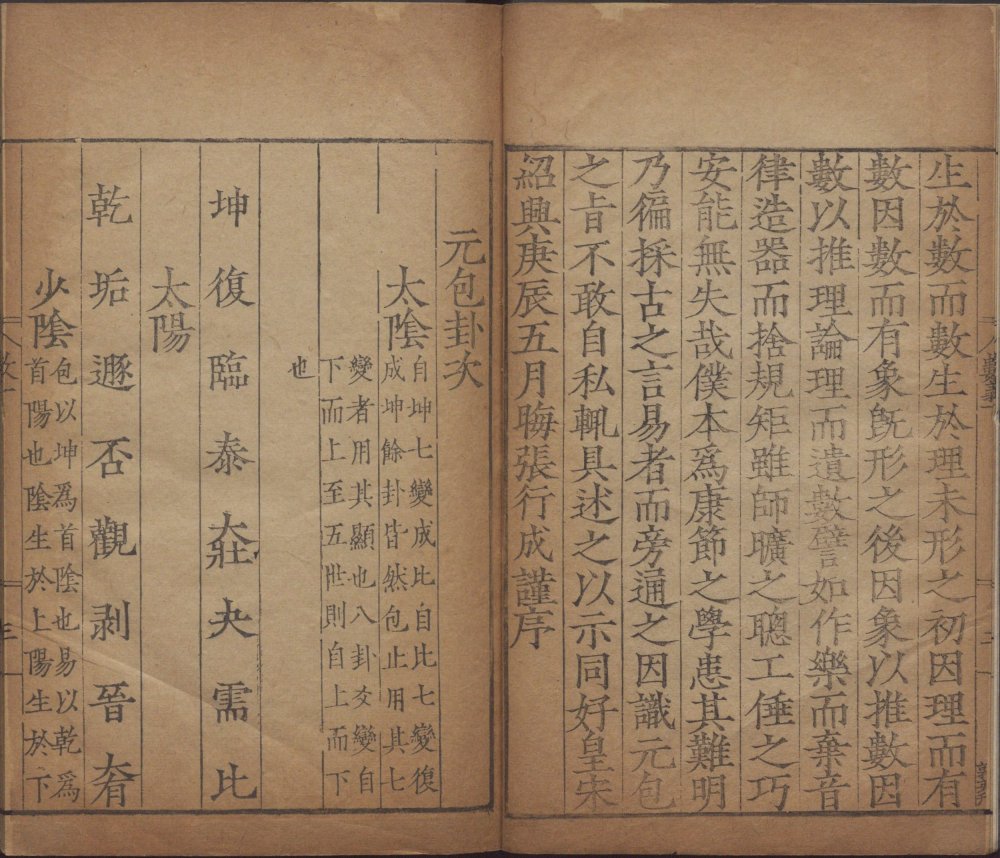 生於數而數生於理未形之初因理而有
數因數而有象旣形之後因象以推數因
數以推理論理而遺數譬如作樂而棄音
律造器而捨規矩雖師曠之聰工倕之巧
安能無失哉僕本爲康節之學患其難明
乃徧採古之言易者而旁通之因識元包
之旨不敢自私輒具述之以示同好皇宋
紹興庚辰五月晦張行成謹序
元包卦次
太陰
自坤七變成比自比七變復
成坤餘卦皆然包止用其七
變者用其顯也八卦爻變自
下而上至五世則自上而下
也
坤復臨泰大壯夬需比
太陽
乾姤遯否觀剥晉大有
少陰
包以坤爲首陰也易以乾爲
首陽也陰生於上陽生於下
三